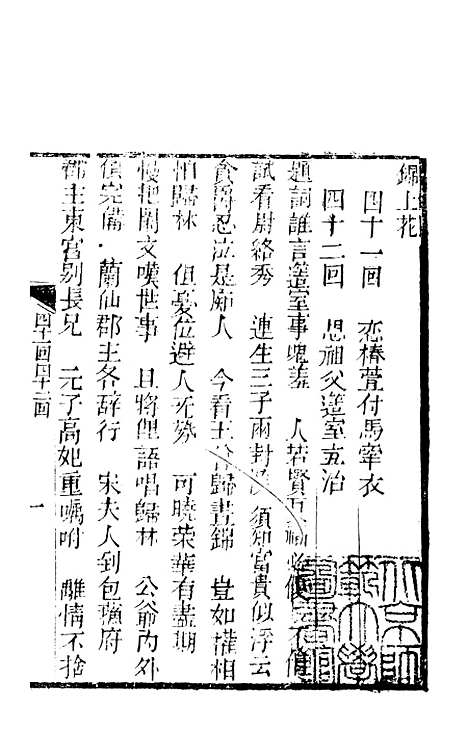 錦上花
四十一回　恋椿萱付馬牽衣
四十二回　思祖父簉室五治
題詞誰言簉室事堪羞　人若賢
試看尉絡秀　連生三子兩封　須知富貴似浮云
食爵忍泣是廟人　今看王爺歸晝錦　豈如權相
怕歸林　但憂位避人死勢　可曉荣華有盡期
慢把閑文嘆世事　且將俚語唱歸林　公爺內外
俱完備　蘭仙郡主各辞行　宋夫人到包螭府
郡主東宮别長兄　元了高妃重嘱咐　離情不捨
四十一回四十二回
一
北京師範大學圖書館